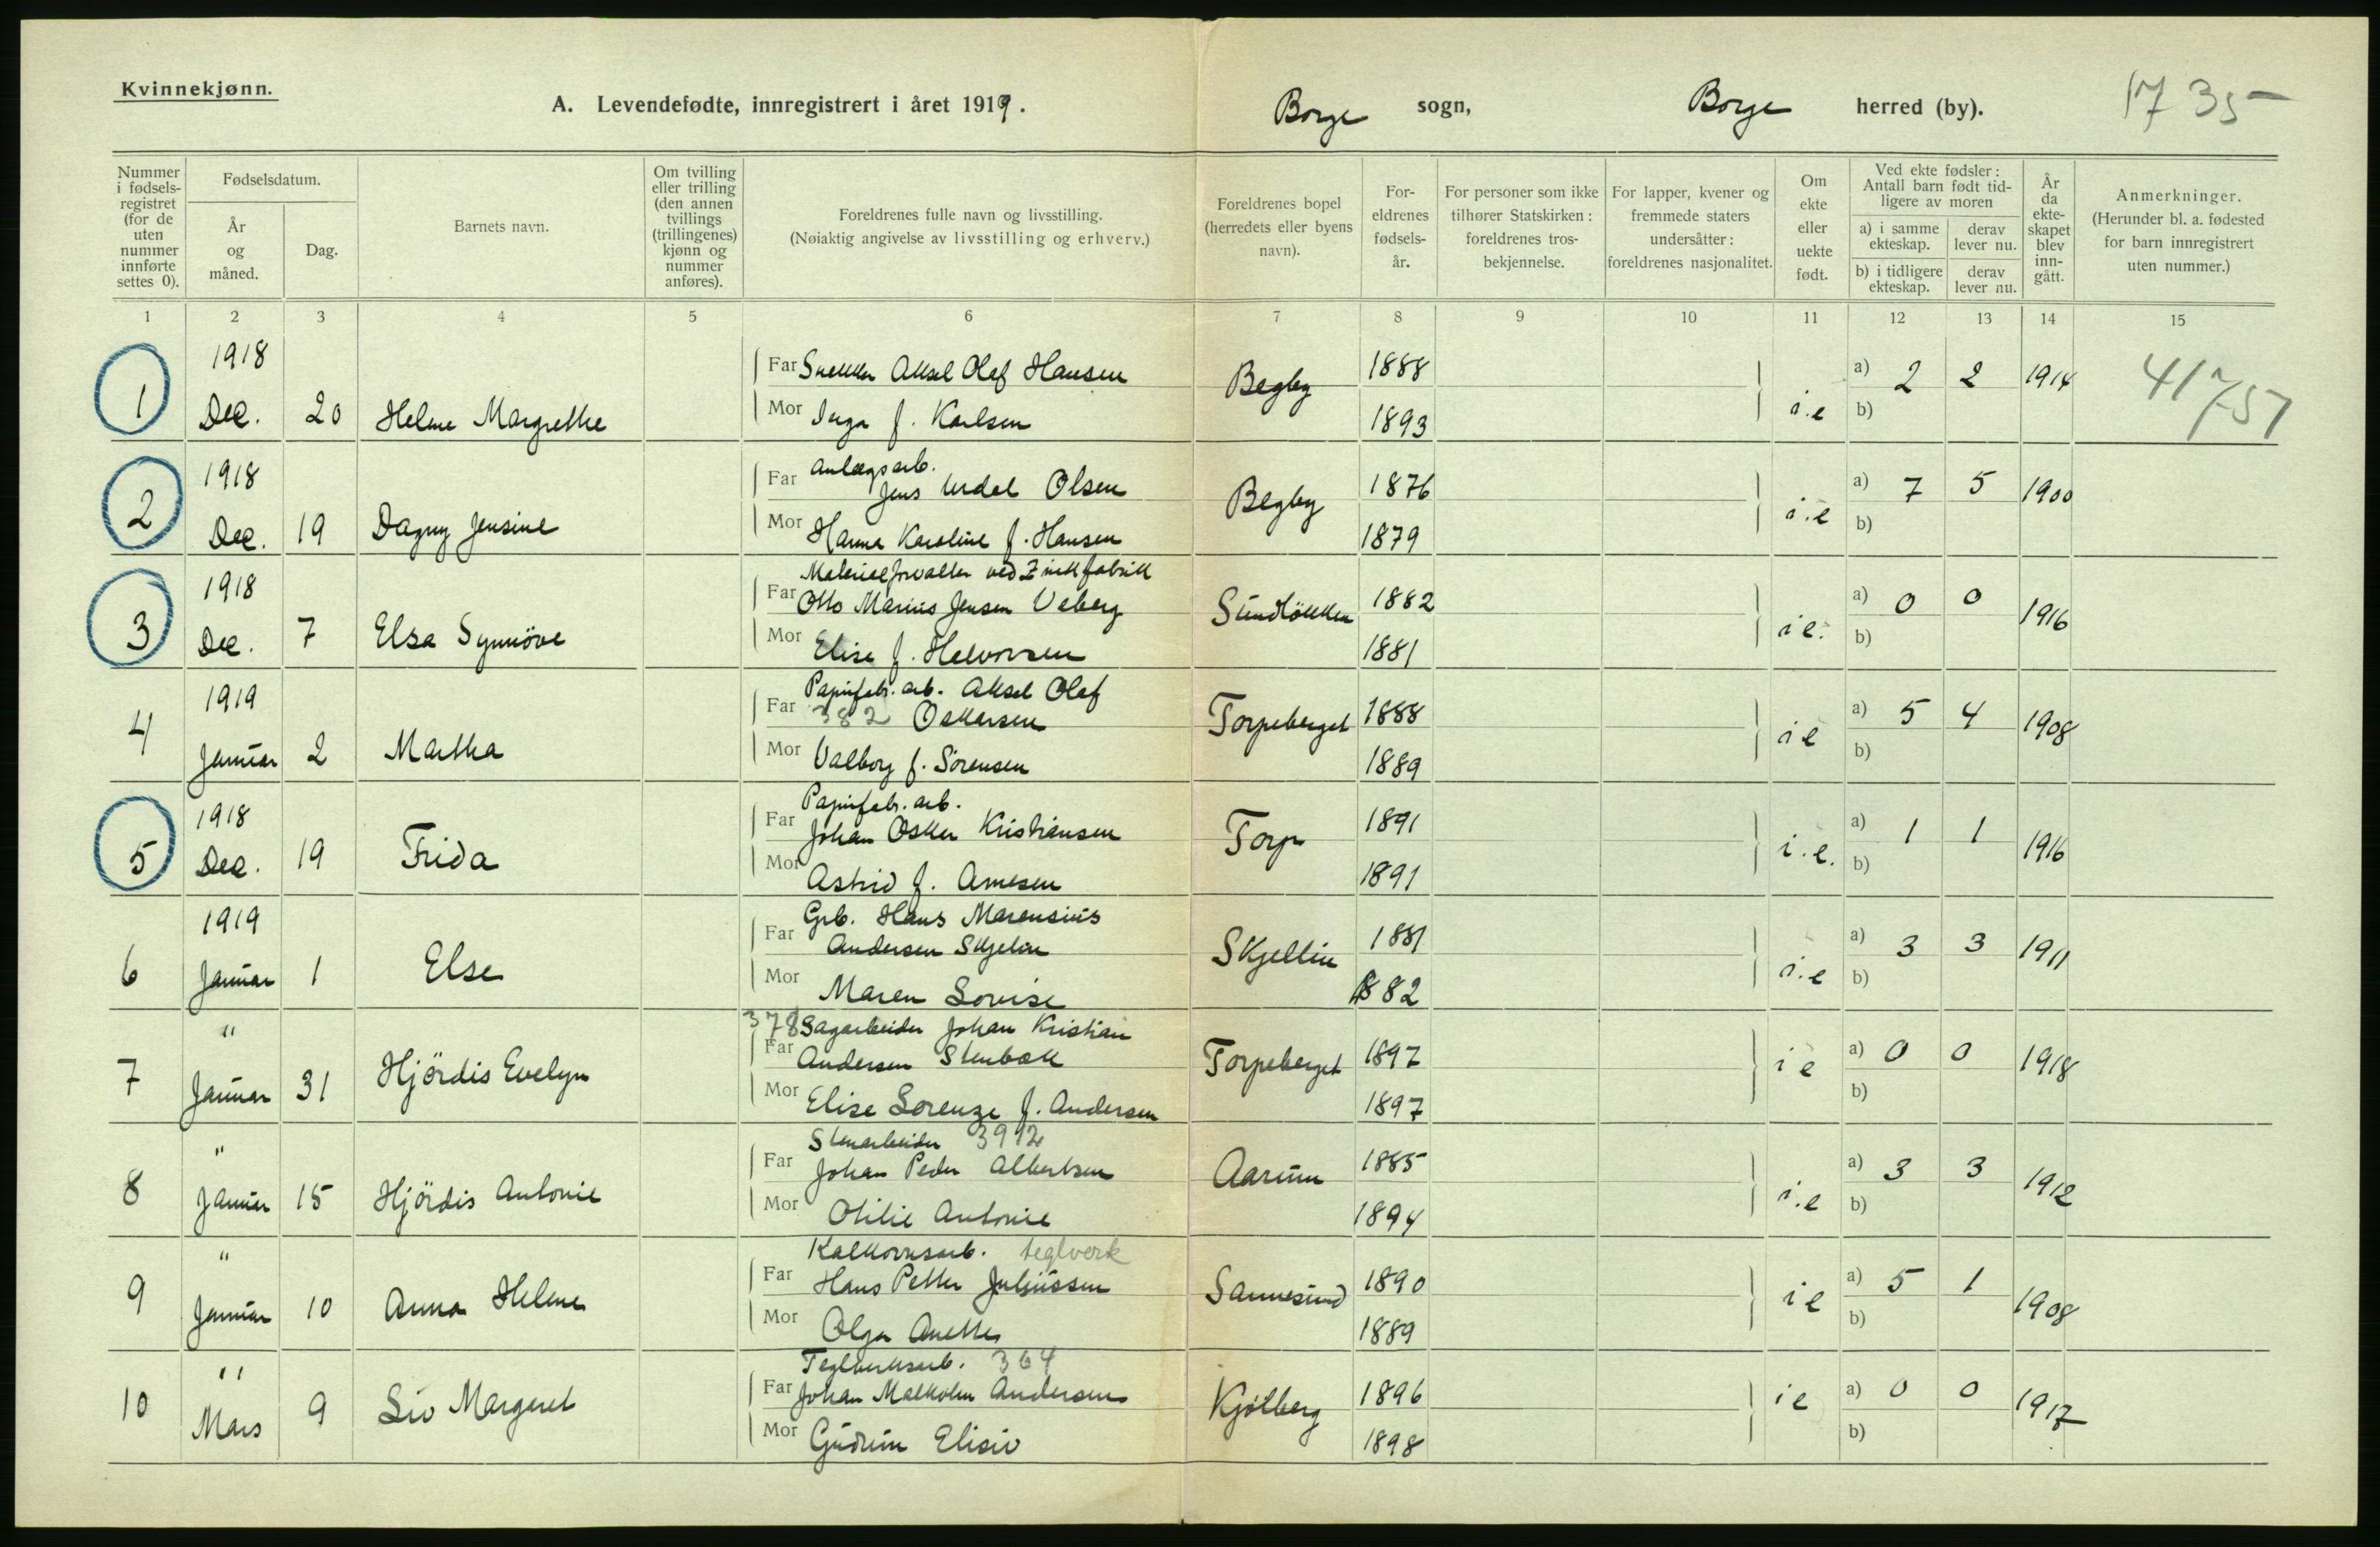 Kvinnekjønn.
A. Levendefødte, innregistrert i året 1919.
Borge sogn, Borge herred (by). 1735
Nummer i fødselsregistret (for de uten nummer innførte settes 0).
Fødselsdatum.
År og måned.
Dag.
Barnets navn.
Om tvilling eller trilling (den annen tvillings (trillingenes) kjønn og nummer anføres).
Foreldrenes fulle navn og livsstilling.
(Nøiaktig angivelse av livsstilling og erhverv.)
Foreldrenes bopel (herredets eller byens navn).
Foreldrenes fødselsår.
For personer som ikke tilhører Statskirken: foreldrenes trosbekjennelse.
For lapper, kvener og fremmede staters undersåtter: foreldrenes nasjonalitet.
Om ekte eller uekte født.
Ved ekte fødsler: Antall barn født tidligere av moren
a) i samme ekteskap. derav lever nu.
b) i tidligere ekteskap. derav lever nu.
År da ekteskapet blev inngått.
Anmerkninger.
(Herunder bl. a. fødested for barn innregistrert uten nummer.)
1 2 3 4 5 6 7 8 9 10 11 12 13 14 15
1918
Far Snekker Aksel Olaf Hansen Begby 1888 a) 2 2 1914 41757
1 Dec. 20 Helene Margrethe
Mor Inga f. Karlsen 1893 i.e b)
1918
Anlægsarb.
Far Jens Urdal Olsen Begby 1876 a) 7 5 1900
2 Dec. 19 Dagny Jensine
Mor Hanna Karoline f. Hansen 1879 i.e b)
1918
Materialforvalter ved Zinkfabrikk
Far Otto Marius Jensen Veberg Sundløkken 1882 a) 0 0 1916
3 Dec. 7 Elsa Synnöve
Mor Elise f. Halvorsen 1881 i e. b)
1919
Papirfabr. arb. Aksel Olaf
Far 382 Oskarsen Torpeberget 1888 a) 5 4 1908
4 Januar 2 Martha
Mor Valborg f. Sörensen 1889 i e b)
1918
Papirfabr. arb.
Far Johan Oskar Kristiansen Torp 1891 a) 1 1 1916
5 Dec. 19 Frida
Mor Astrid f. Arnesen 1891 i.e. b)
1919
Grb. Hans Marensius
Far Andersen Skjelin Skjellin 1881 a) 3 3 1911
6 Januar 1 Else
Mor Maren Lovise 1882 i.e b)
"
378 Sagarbeider Johan Kristian
Far Andersen Stenbæk Torpeberget 1897 a) 0 0 1918
7 Januar 31 Hjördis Evelyn
Mor Elise Lorenze f. Andersen 1897 i e b)
"
Stenarbeider 3912
Far Johan Peder Albertsen Aarum 1885 a) 3 3 1912
8 Januar 15 Hjördis Antonie
Mor Otilie Antonie 1894 i.e b)
"
teglverk
Far Hans Petter Juliussen Sannesund 1890 a) 5 1 1908
9 Januar 10 Anna Helene
Mor Olga Anette 1889 i e b)
"
Teglverksarb. 364
Far Johan Malkolm Andersen Kjölberg 1896 a) 0 0 1917
10 Mars 9 Liv Margaret
Mor Gudrun Elisiv 1898 i e b)